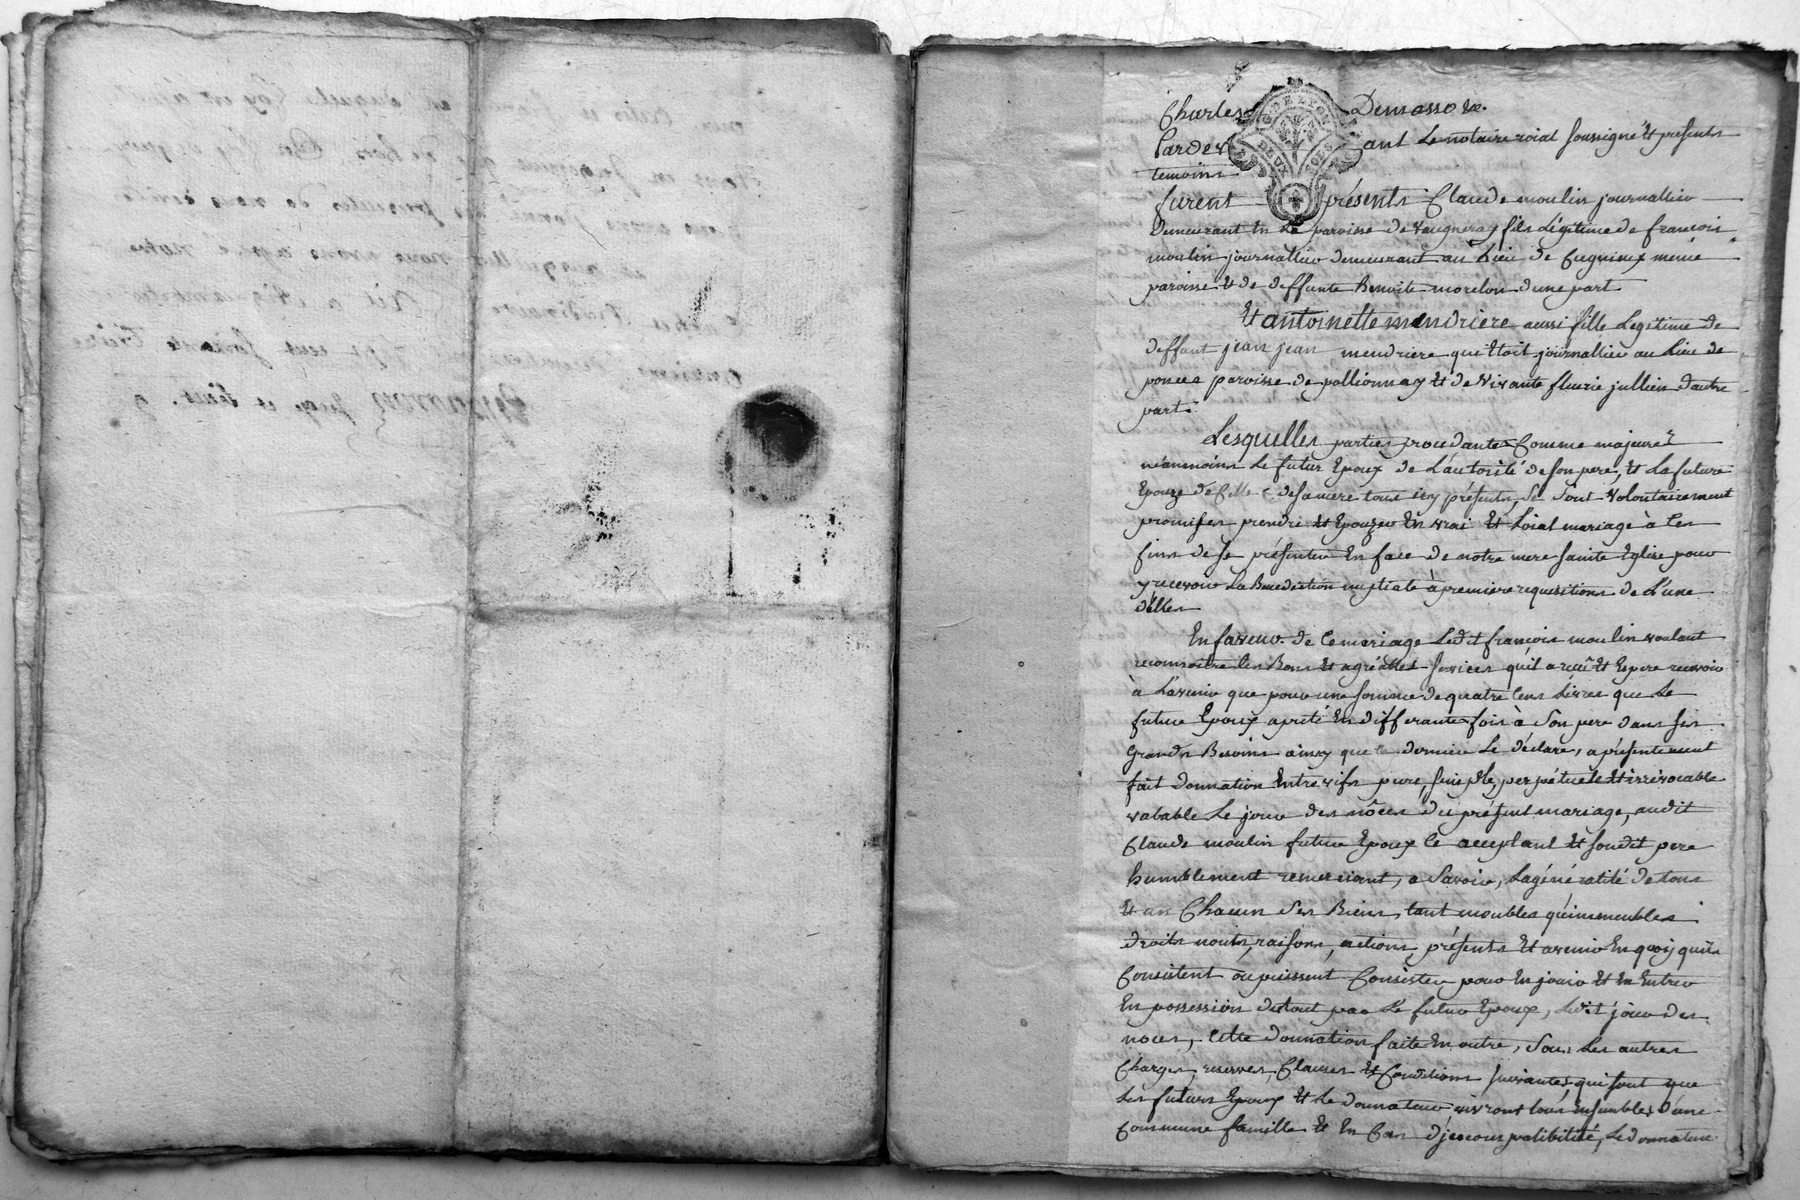 Charles Demasso &.
Pardev ant Le notaire roial soussigné Et présents
temoins
furent présents Claude moulin journallier
Demeurant En La paroisse de Vaugneray fils Légitime de françois
moulin journallier demeurant au Lieu de même
paroisse Et de deffunte Benoite morelon d'une part
Et antoinette mendriere aussi fille Legitime de
deffunt jean jean mendriere qui Etoit journallier au Lieu de
ponces paroisse de pollionnay Et de vivante fleurie jullien d'autre
part.
Lesquelles parties procedantes Comme majeures
néanmoins Le futur Epoux de L'autorité de son pere, Et La future
Epouze de Celle de sa mere tous icy présents, se sont volontairement
promises prendre Et Epouzer En vrai Et Loial mariage à Ces
fins de se présenter En face de notre mere sainte Eglise pour
y recevoir La Benediction nuptiale à premiere requisitions de L'une
d'elles
En faveur de Ce mariage Ledit françois moulin voulant
reconnoitre Les Bons Et agréables services qu'il a reçu Et Espere recevoir
à L'avenir que pour une somme de quatre Cens Livres que Le
futur Epoux a preté En différantes fois à son pere dans ses
Grands Besoins ainsy que Ce dernier Le déclare, a présentement
fait donnation Entre vifs pure, simple, perpétuelle Et irrévocable
valable Le jour des nôces du présent mariage, audit
Claude moulin futur Epoux Ce acceptant Et sondit pere
humblement remerciant, a Savoir, La généralité de tous
Et un Chacun ses Biens, tant meubles qu'immeubles
droits noms, raisons, actions, présents Et avenir En quoy qu'ils
Consistent ou puissent Consister pour En jouir Et En Entrer
En possession du tout par Le futur Epoux, Ledit jour des
noces, Cette donnation faite En outre, sous Les autres
Charges, reserves, Clauses Et Conditions suivantes qui sont que
Les futurs Epoux Et Le donnateur vivront tous Ensembles d'une
Commune famille Et En Cas d'jncompatibilité, Le donnateur